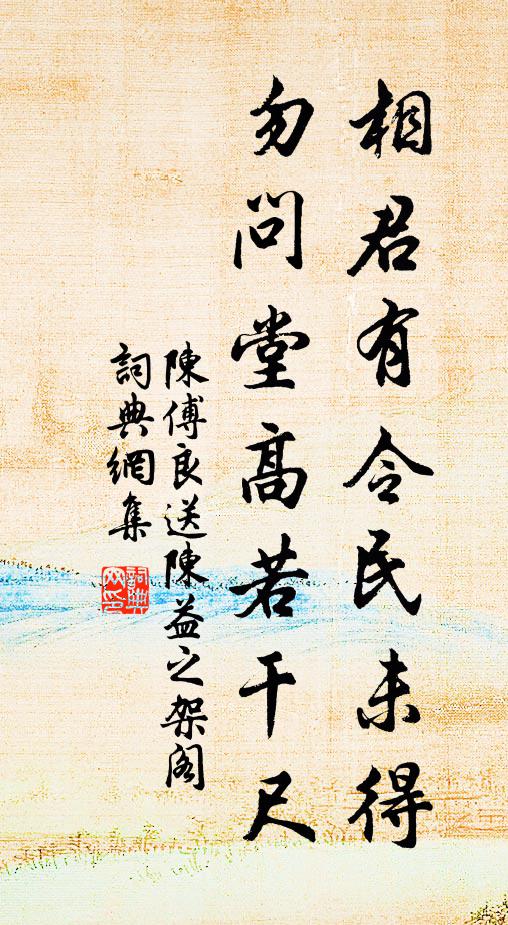 相君有令民未得
勿問堂高若干尺
陳傅良送陳益之架閣
詞典網集
詞典